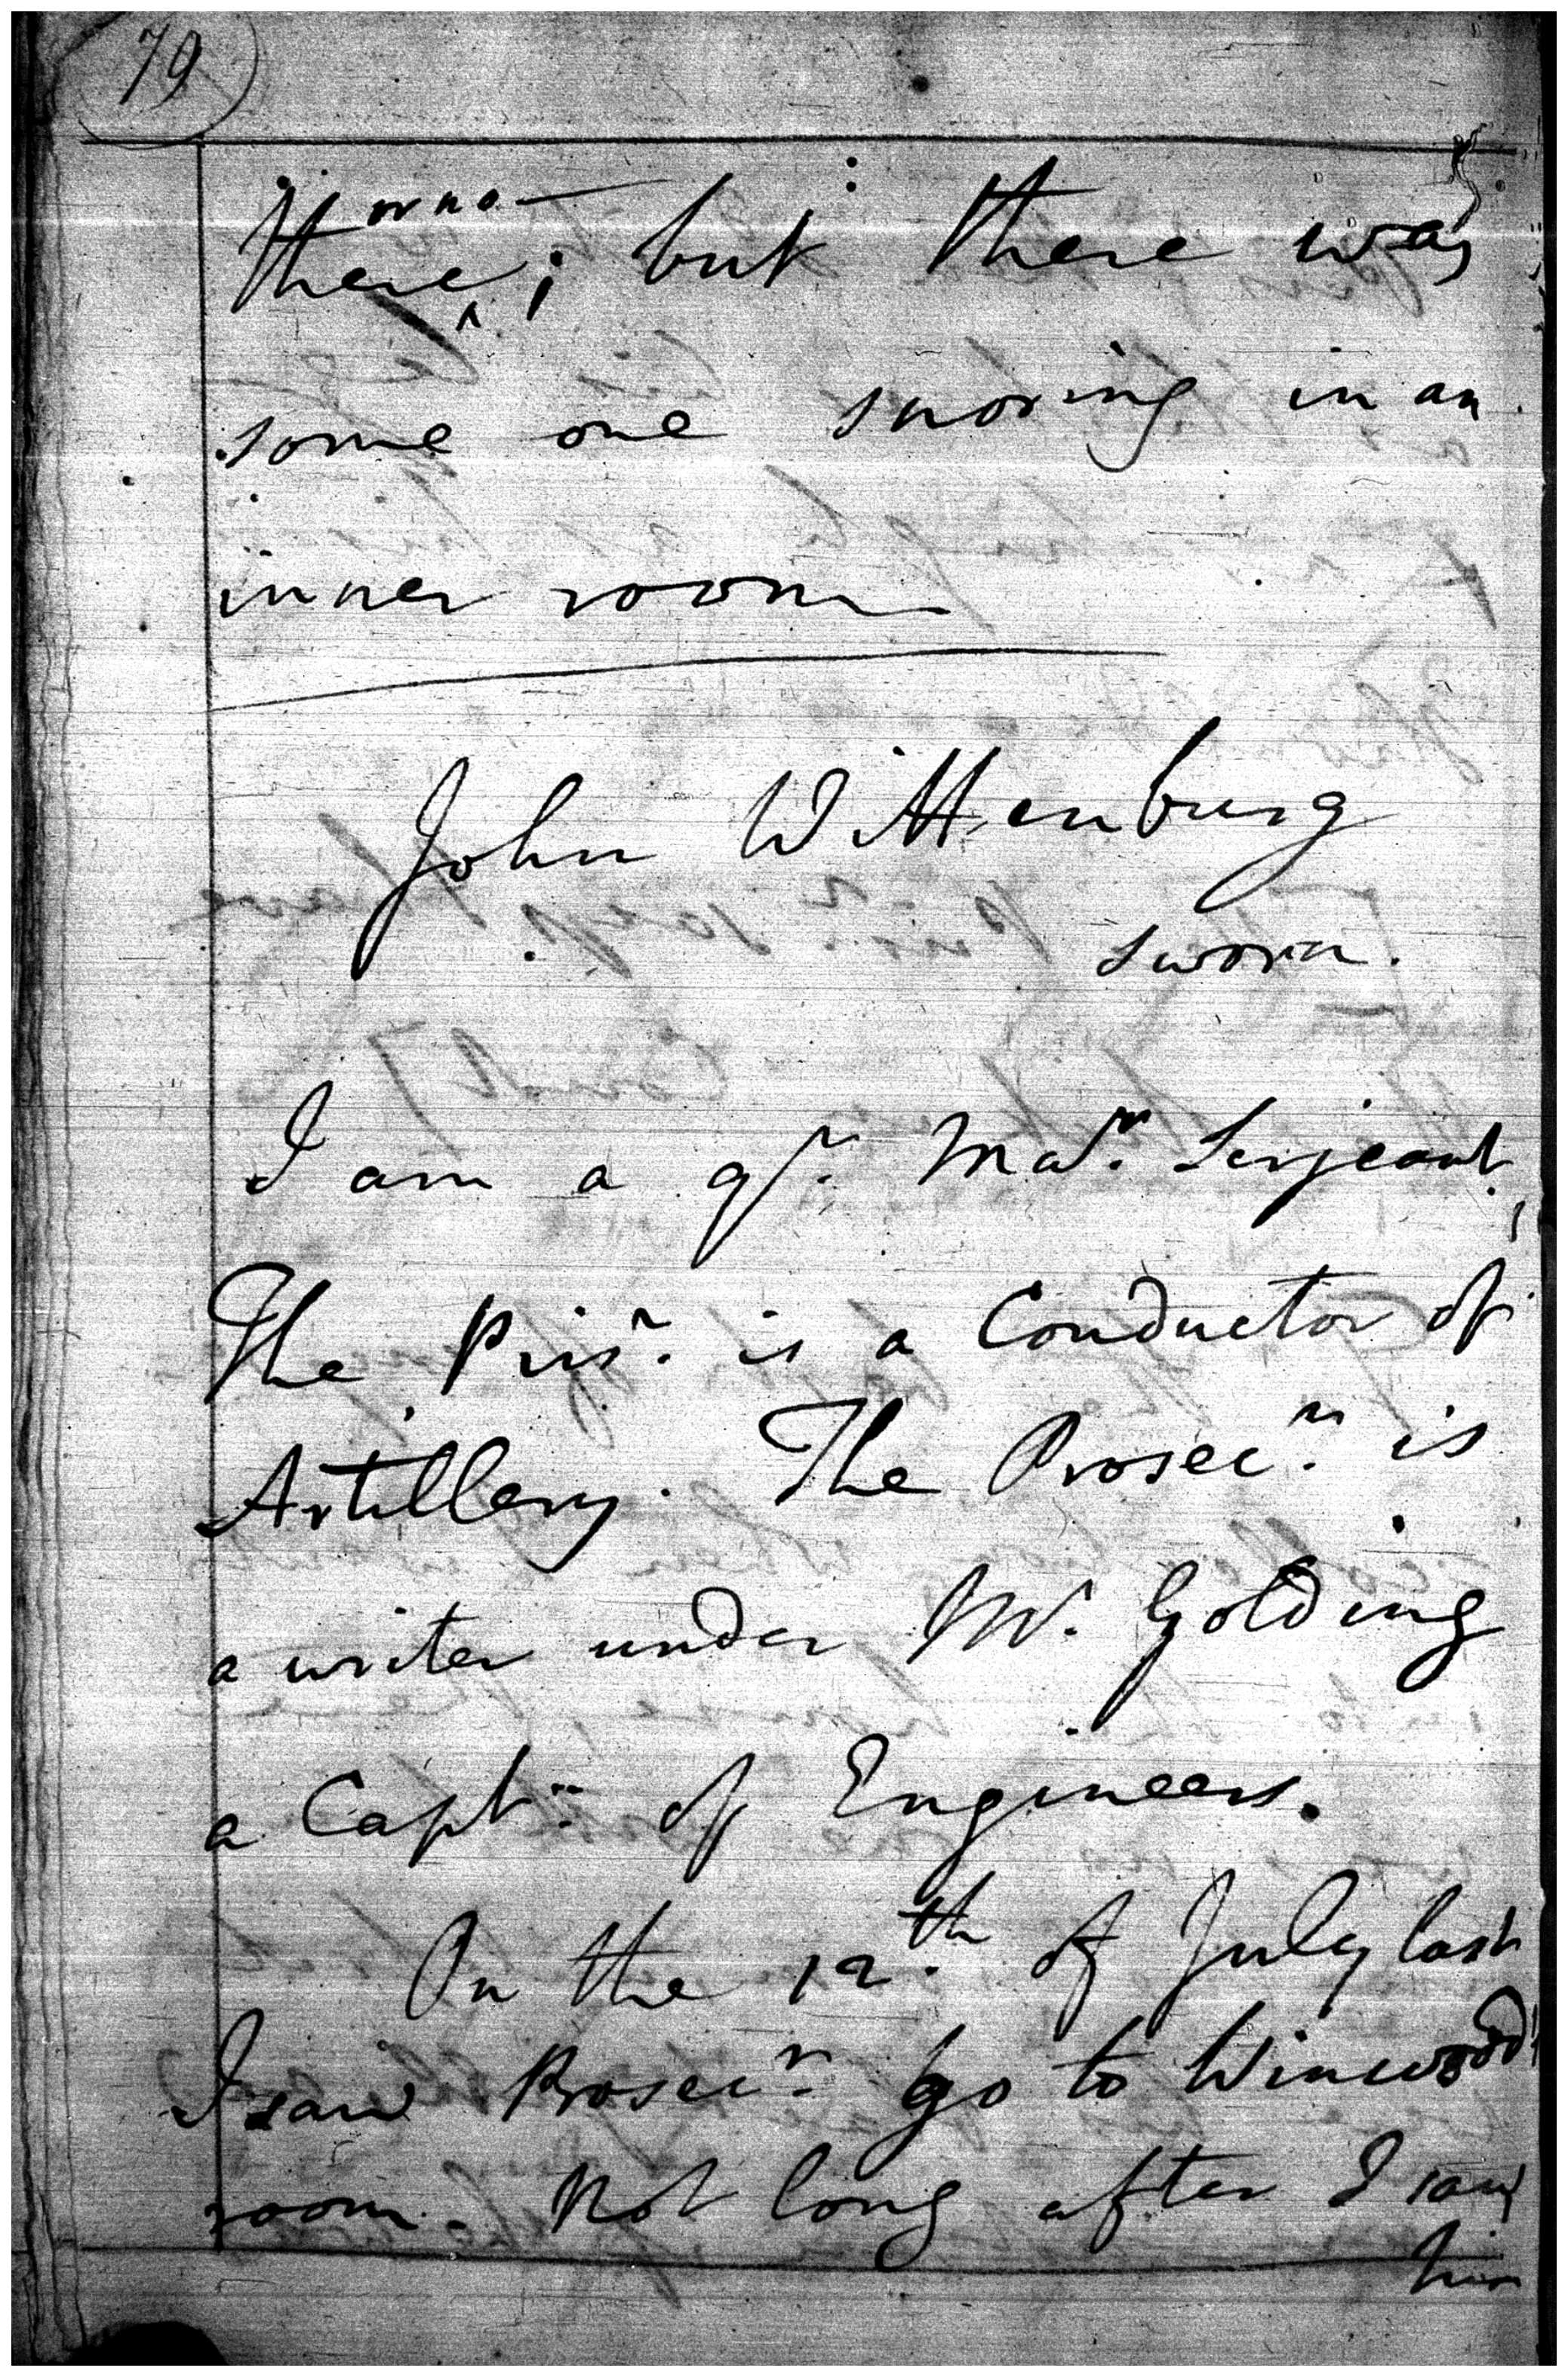 79
there was; but there was
some one snoring in an
inner room
John Wittenburg
sworn.
I am a qr. Mar. Serjeant,
The Prisr. is a Conductor of
Artillery. The Prosecr. is
a writer under Mr. Golding
a Captn. of Engineers.
On the 12th. of July last
I saw Prosecr. go to Winwood's
room. Not long after I saw
him